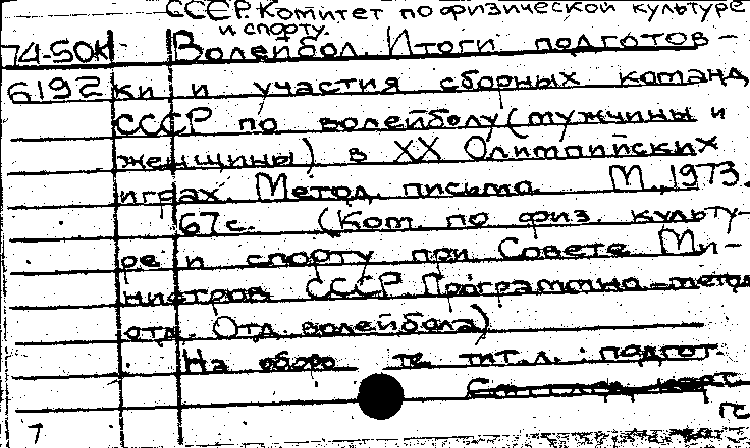 СССР. Комитет по физической культуре
и спорту.
74-50к Волейбол. Итоги подготов-
6192 ки и участия сборных команд
СССР по волейболу (мужчины и
женщины) в XX Олимпийских
играх. Метод. письмо. М., 1973.
67 с. (Ком. по физ. культу-
ре и спорту при Совете Ми-
нистров СССР. Программно-метод
отд. Отд. волейбола)
На оборо те тит.л.: подгот.
7